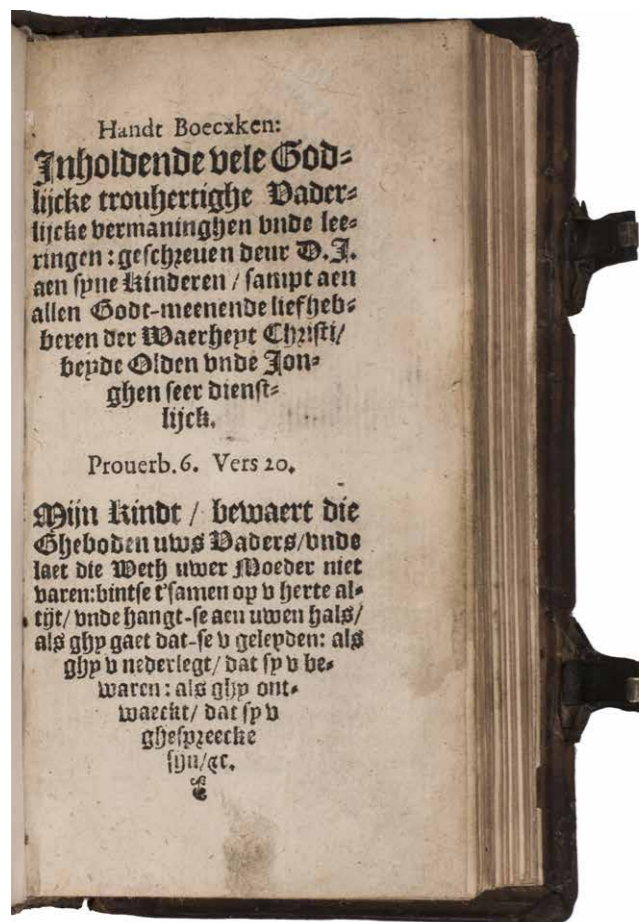 Handt Boecxken:
Inholdende vele God-
lijcke trouhertighe Vader-
lijcke vermaninghen vnde lee-
ringen: geschreuen deur D.J.
aen syne kinderen / sampt aen
allen Godt-meenende liefheb-
beren der Waerheyt Christi/
beyde Olden vnde Jon-
ghen seer dienst-
lijck.
Prouerb.6. Vers 20.
Mijn kindt / bewaert die
Gheboden uws Vaders/vnde
laet die Weth uwer Moeder niet
varen:bintse t'samen op v herte al-
tijt/ vnde hangt-se aen uwen hals/
als ghy gaet dat-se v geleyden: als
ghy v nederlegt/ dat sy v be-
waren: als ghy ont-
waeckt/ dat sy v
ghespreecke
sijn/&c.